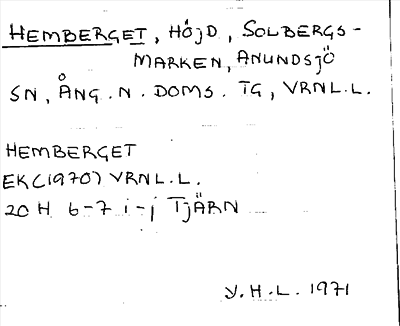 HEMBERGET, HÖJD, SOLBERGS-
MARKEN, ANUNDSJÖ
SN, ÅNG. N. DOMS. TG, VRNL.L.
HEMBERGET
EK(1970) VRNL.L.
20 H 6-7 i-j TJÄRN
Y.H.L. 1971